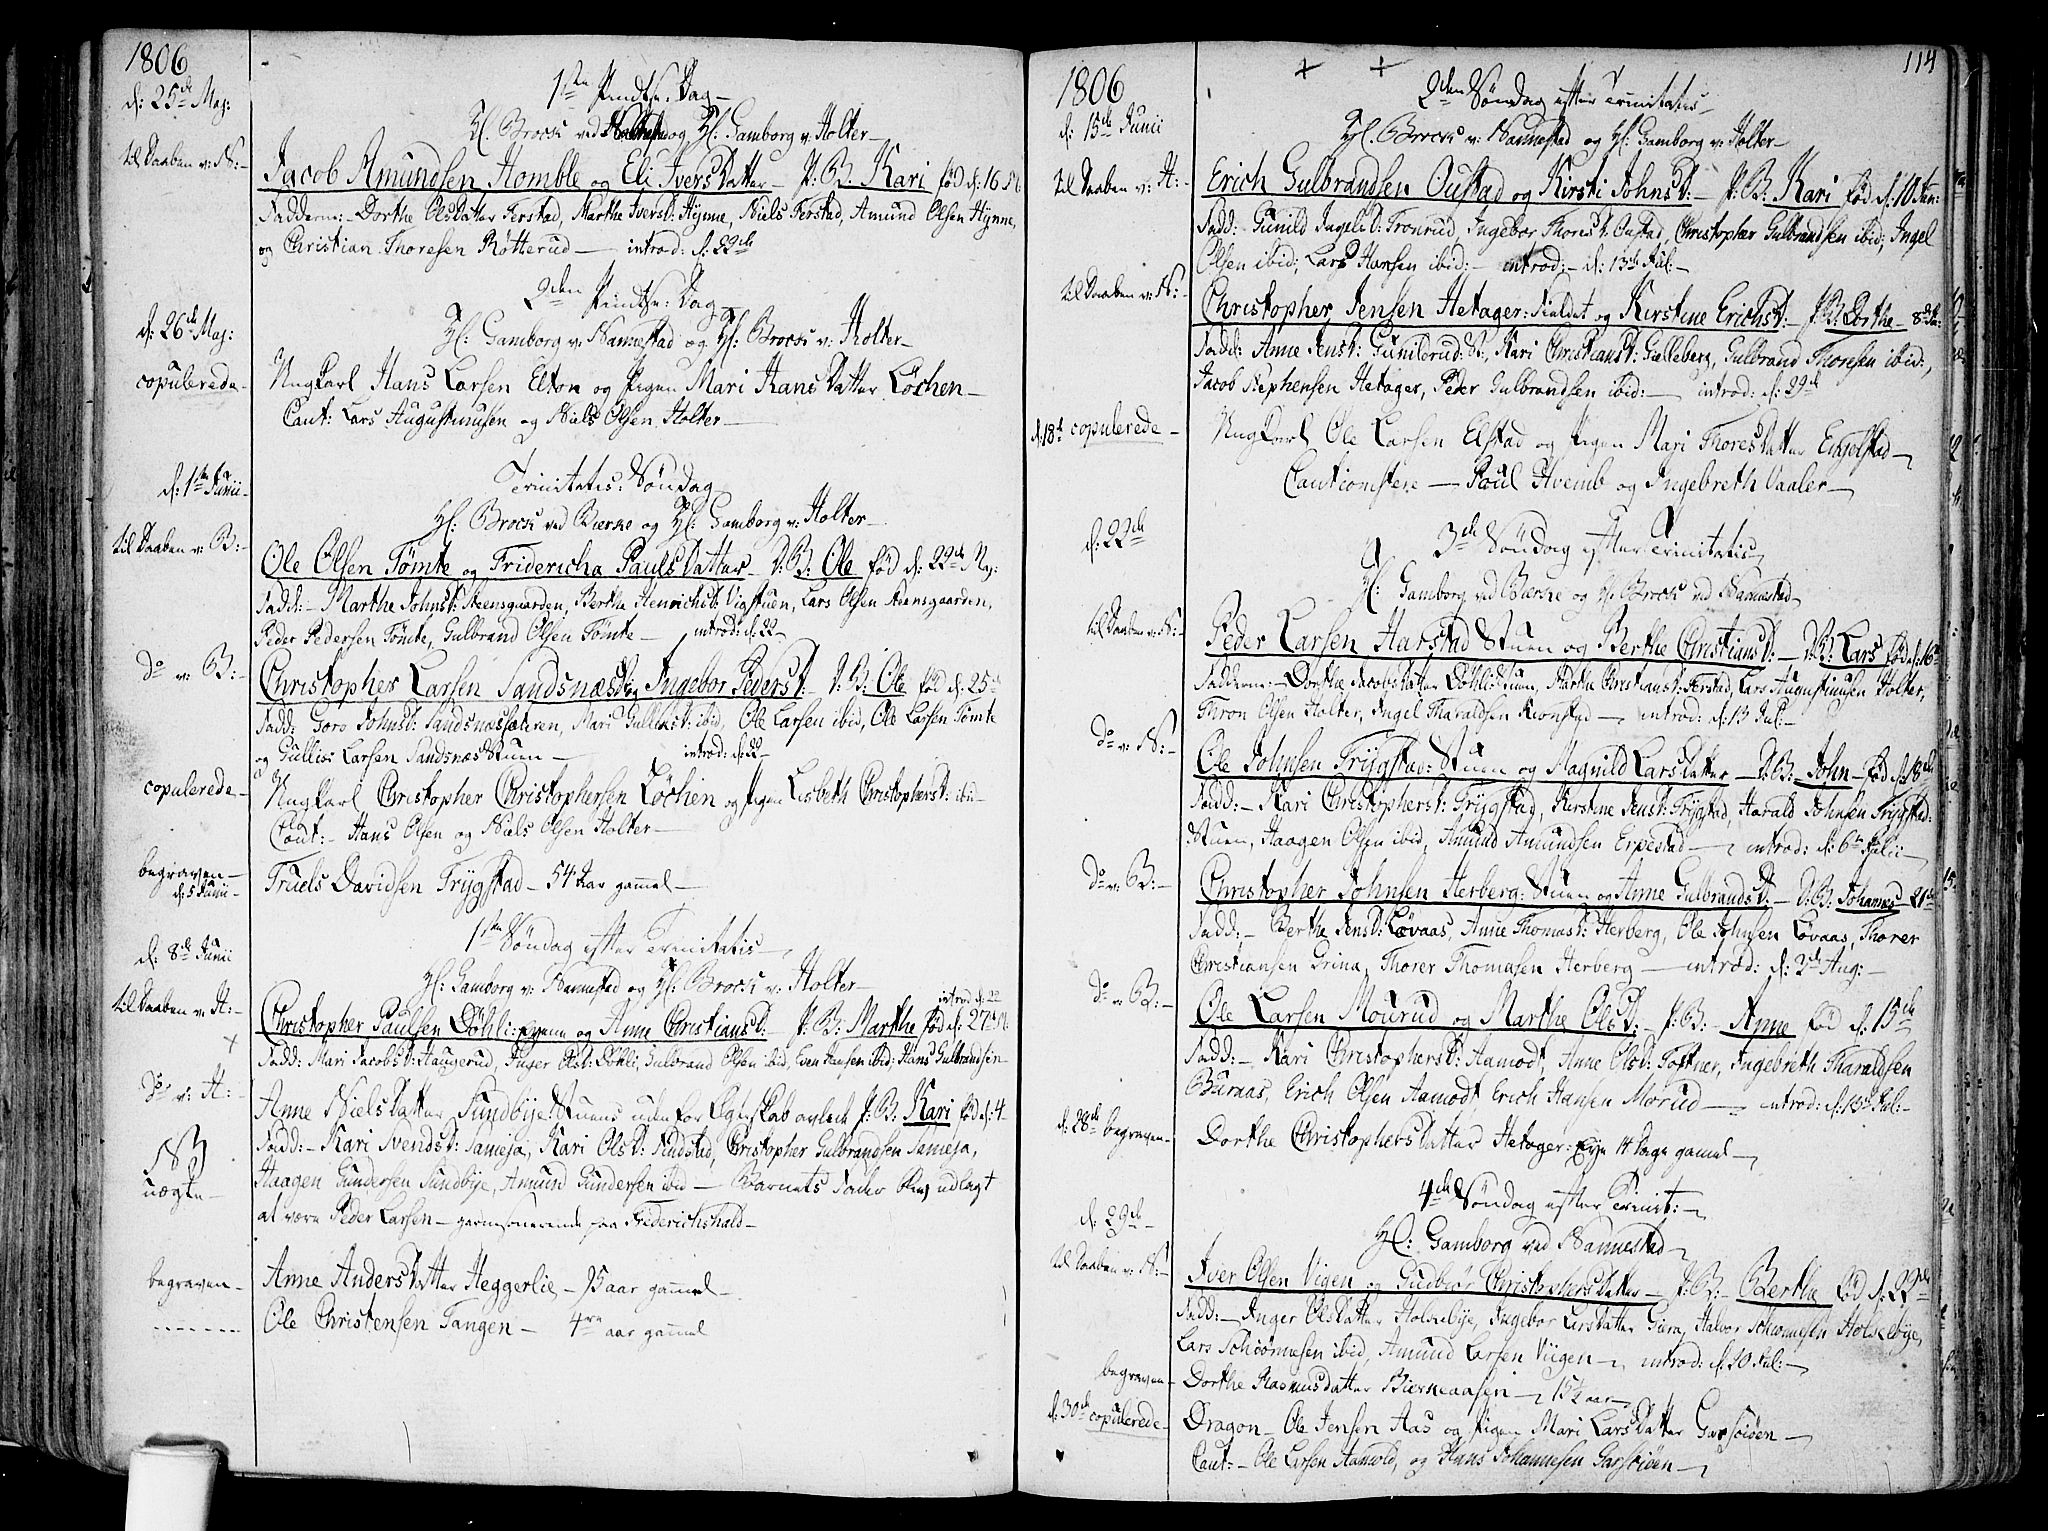 1806
d: 25de Maj:
1ste Pindtse: Dag—
Hl. Brock ved og Hl: Gamborg v: Holter—
til Daaben v: N:—
Jacob Amundsen Homble og Eli IversDatter— P: B: Kari fød d: 16 M
Fadderne:— Dorthe OlsDatter Ferstad, Marthe Iversd: Hynne, Niels Ferstad, Amund Olsen Hynne,
og Christian Thoresen Røtterud— introd: d: 22de
2den Pindtse: Dag
d: 26de Maj:
Hl: Gamborg v: Nannestad og Hl: Brock v: Holter—
copulerede—
Ungkarl Hans Larsen Elton og Pigen Mari HansDatter Løchen—
Caut: Lars Augustinusen og Niels Olsen Holter—
Trinitatis: Søndag
d: 1ste Junii—
Hl: Brock ved Bierke og Hl: Gamborg v: Holter—
til Daaben v: B:—
Ole Olsen Tømte og Fridericha PaulsDatter— D: B: Ole fød d: 22de Maj:
Fadd:— Marthe Johnsd: Steensgaarden, Berthe Henrichsd: Vigstuen, Lars Olsen Steensgaarden,
Peder Pedersen Tømte, Gulbrand Olsen Tømte— introd: d: 22—
do v: B:—
Christopher Larsen Sandsnæs Ingebor Pedersd:— D: B: Ole fød d: 25de
Fadd: Goro Johnsd: Sandsnæssæteren, Mari Gulliksd: ibid, Ole Larsen ibid, Ole Larsen Tømte
og Gullies Larsen SandsnæsStuen— introd: d: 22—
copulerede—
Ungkarl Christopher Christophersen Løchen og Pigen Lisbeth Christophersd: ibid—
Caut:— Hans Olsen og Niels Olsen Holter—
begraven—
d: 5 Junii—
Truels Davidsen Trygstad— 54 Aar gammel—
1ste Søndag efter Trinitatis—
d: 8de Junii
Hl: Gamborg v: Nannestad og Hl: Brock v: Holter—
til Daaben v: H:—
introd: d: 22
Christopher Paulsen Døhli: og Anne Christiansd:— P: B: Marthe fød d: 27de M.
Fadd: Mari Jacobsd: Haugerud, Inger Olsd: Døhli, Gulbrand Olsen ibid, Even Hansen ibid, Hans Gulbrandsen—
do v: H:—
Anne NielsDatter SundbyeStuens uden for Egteskab avlede P: B: Kari fød d: 4—
Fadd:— Kari Svendsd: Sameja, Kari Olsd: Rudstad, Christopher Gulbrandsen Sameja,
NB
uægte—
Haagen Gundersen Sundbye, Amund Gundersen ibid— Barnets Fader blev udlagt
at være Peder Larsen— garnisonerende paa Friderichshald—
begraven—
Anne AndersDatter Heggerlie— 75 aar gammel—
Ole Christensen Tangen— 4re aar gammel
114
1806
d: 15de Junii
2den Søndag efter Trinitatis—
Hl. Brock v: Nannestad og Hl: Gamborg v: Holter—
til Daaben v: H:—
Erich Gulbrandsen Oustad og Kirsti Johnsd:— P: B: Kari fød d: 10 Jun:
Fadd: Gunild Ingelsd: Tronrud, Ingebor Thoresd: Oustad, Christopher Gulbrandsen ibid, Ingel
Olsen ibid, Lars Hansen ibid:— introd:— d: 13de Jul:—
til Daaben v: N:—
Christopher Jensen Hetager: og Kirstine Erichsd:— P: B: Dorthe— 8de Ju:
Fadd: Anne Jensd: Gunilrud: St:, Kari Christiansd: Galleberg, Gulbrand Thoresen ibid:,
Jacob Stephensen Hetager, Peder Gulbrandsen ibid:— introd: d: 29de
d: 18de copulerede—
Ungkarl Ole Larsen Elstad og Pigen Mari ThoresDatter Engelstad—
Cautionister— Poul Hvemb og Ingebreth Vaaler—
d: 22de
3de Søndag efter Trinitatis
Hl: Gamborg ved Bierke og Hl: Brock ved Nannestad—
til Daaben v: N:—
Peder Larsen HarstadStuen og Berthe Christiansd:— D: B: Lars fød d: 16de
Fadderne:— Dorthe JacobsDatter DøhliStuen, Marthe Christiansd: Ferstad, Lars Augustinusen Holter,
Thron Olsen Holter, Ingel Tharaldsen Kionstad— introd: d: 13 Jul:—
do v: N:—
Ole Johnsen Trygstad:Stuen og Magnild LarsDatter— D: B: John— fød d: 18de
Fadd:— Kari Christophersd: Trygstad, Kirstine Jensd: Trygstad, Harald Johnsen Trygstad:
Stuen, Haagen Olsen ibid, Amund Amundsen Erpestad— introd: d: 6te Julii—
do v: B:—
Christopher Johnsen Herberg:Stuen og Anne Gulbrandsd:— D: B: Johannes— 21de
Fadd:— Berthe Jensd: Løvaas, Anne Thomasd: Herberg, Ole Johnsen Løvaas, Thorer
Christiansen Grina, Thorer Thomasen Herberg— introd: d: 3de Aug:—
do v: B:—
Ole Larsen Mourud og Marthe Olsd:— P: B:— Anne fød d: 15de
Fadd:— Kari Christophersd: Aamodt, Anne Olsd: Toftner, Ingebreth Tharaldsen
Buraas, Erich Olsen Aamodt, Erich Hansen Morud— introd: d: 13de Jul:—
d: 28de begraven—
Dorthe ChristophersDatter Hetager: Eye 14 Dage gamel—
4de Søndag efter Trinit:—
d: 29de—
Hl: Gamborg ved Nannestad—
til Daaben v: N:—
Iver Olsen Vigen og Gudbiør ChristophersDatter— P: B:— Berthe fød d: 22de
Fadd:— Inger OlsDatter Holsebye, Ingebor LarsDatter Giera, Halvor Holsebye,
Lars ibid, Amund Larsen Viigen— introd: d: 20 Jul:—
begraven—
Dorthe RasmusDatter Bierneaasen— 15½ aar—
d: 30de copulerede—
Dragon— Ole Jensen Aas og Pigen Mari LarsDatter Garsiøen—
Caut:— Ole Larsen Aamold, og Hans Johannesen Garsiøen—